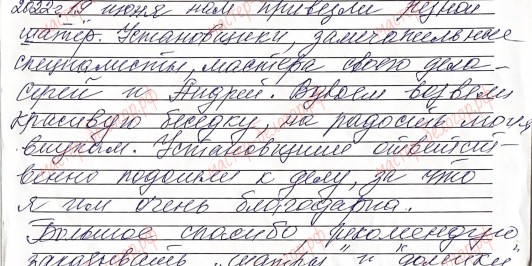 2022 г. 19 июня нам привезли резной
шатёр. Установщики, замечательные
специалисты, мастера своего дела –
Сергей и Андрей. Вдвоем возвели
красивую беседку на радость моим
внукам. Установщики ответст-
венно подошли к делу, за что
я им очень благодарна.
Большое спасибо, рекомендую
заказывать "шатры" и "домики"